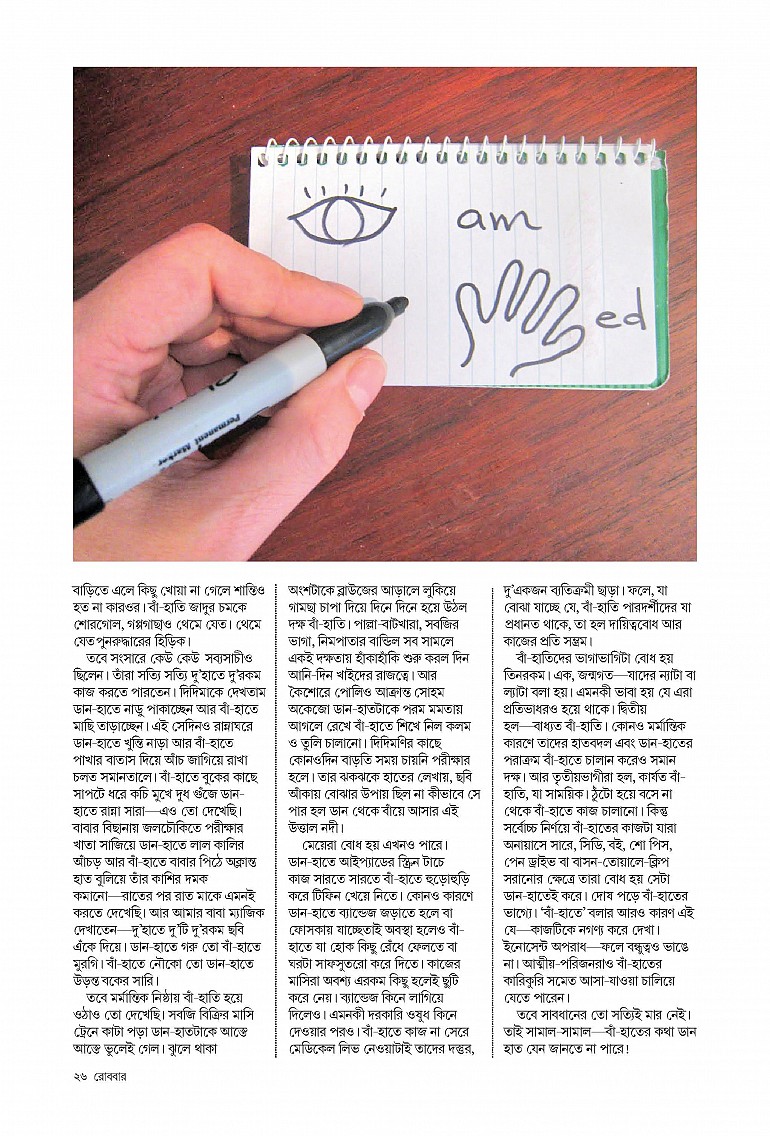 am
ed
Permanent Marker
বাড়িতে এলে কিছু খোয়া না গেলে শান্তিও
হত না কারওর। বাঁ-হাতি জাদুর চমকে
শোরগোল, গপ্পগাছাও থেমে যেত। থেমে
যেত পুনরুদ্ধারের হিড়িক।
তবে সংসারে কেউ কেউ সব্যসাচীও
ছিলেন। তাঁরা সত্যি সত্যি দু'হাতে দু'রকম
কাজ করতে পারতেন। দিদিমাকে দেখতাম
ডান-হাতে নাড়ু পাকাচ্ছেন আর বাঁ-হাতে
মাছি তাড়াচ্ছেন। এই সেদিনও রান্নাঘরে
ডান-হাতে খুন্তি নাড়া আর বাঁ-হাতে
পাখার বাতাস দিয়ে আঁচ জাগিয়ে রাখা
চলত সমানতালে। বাঁ-হাতে বুকের কাছে
সাপটে ধরে কচি মুখে দুধ গুঁজে ডান-
হাতে রান্না সারা—এও তো দেখেছি।
বাবার বিছানায় জলচৌকিতে পরীক্ষার
খাতা সাজিয়ে ডান-হাতে লাল কালির
আঁচড় আর বাঁ-হাতে বাবার পিঠে অক্লান্ত
হাত বুলিয়ে তাঁর কাশির দমক
কমানো—রাতের পর রাত মাকে এমনই
করতে দেখেছি। আর আমার বাবা ম্যাজিক
দেখাতেন—দু'হাতে দু'টি দু'রকম ছবি
এঁকে দিয়ে। ডান-হাতে গরু তো বাঁ-হাতে
মুরগি। বাঁ-হাতে নৌকো তো ডান-হাতে
উড়ন্ত বকের সারি।
তবে মর্মান্তিক নিষ্ঠায় বাঁ-হাতি হয়ে
ওঠাও তো দেখেছি। সবজি বিক্রির মাসি
ট্রেনে কাটা পড়া ডান-হাতটাকে আস্তে
আস্তে ভুলেই গেল। ঝুলে থাকা
অংশটাকে ব্লাউজের আড়ালে লুকিয়ে
গামছা চাপা দিয়ে দিনে দিনে হয়ে উঠল
দক্ষ বাঁ-হাতি। পাল্লা-বাটখারা, সবজির
ভাগা, নিমপাতার বান্ডিল সব সামলে
একই দক্ষতায় হাঁকাহাঁকি শুরু করল দিন
আনি-দিন খাইদের রাজত্বে। আর
কৈশোরে পোলিও আক্রান্ত সোহম
অকেজো ডান-হাতটাকে পরম মমতায়
আগলে রেখে বাঁ-হাতে শিখে নিল কলম
ও তুলি চালানো। দিদিমণির কাছে
কোনওদিন বাড়তি সময় চায়নি পরীক্ষার
হলে। তার ঝকঝকে হাতের লেখায়, ছবি
আঁকায় বোঝার উপায় ছিল না কীভাবে সে
পার হল ডান থেকে বাঁয়ে আসার এই
উত্তাল নদী।
মেয়েরা বোধ হয় এখনও পারে।
ডান-হাতে আইপ্যাডের স্ক্রিন টাচে
কাজ সারতে সারতে বাঁ-হাতে হুড়োহুড়ি
করে টিফিন খেয়ে নিতে। কোনও কারণে
ডান-হাতে ব্যান্ডেজ জড়াতে হলে বা
ফোসকায় যাচ্ছেতাই অবস্থা হলেও বাঁ-
হাতে যা হোক কিছু রেঁধে ফেলতে বা
ঘরটা সাফসুতরো করে দিতে। কাজের
মাসিরা অবশ্য এরকম কিছু হলেই ছুটি
করে নেয়। ব্যান্ডেজ কিনে লাগিয়ে
দিলেও। এমনকী দরকারি ওষুধ কিনে
দেওয়ার পরও। বাঁ-হাতে কাজ না সেরে
মেডিকেল লিভ নেওয়াটাই তাদের দস্তুর,
দু'একজন ব্যতিক্রমী ছাড়া। ফলে, যা
বোঝা যাচ্ছে যে, বাঁ-হাতি পারদর্শীদের যা
প্রধানত থাকে, তা হল দায়িত্ববোধ আর
কাজের প্রতি সম্ভ্রম।
বাঁ-হাতিদের ভাগাভাগিটা বোধ হয়
তিনরকম। এক, জন্মগত—যাদের ন্যাটা বা
ল্যাটা বলা হয়। এমনকী ভাবা হয় যে এরা
প্রতিভাধরও হয়ে থাকে। দ্বিতীয়
হল—বাধ্যত বাঁ-হাতি। কোনও মর্মান্তিক
কারণে তাদের হাতবদল এবং ডান-হাতের
পরাক্রম বাঁ-হাতে চালান করেও সমান
দক্ষ। আর তৃতীয়ভাগীরা হল, কার্যত বাঁ-
হাতি, যা সাময়িক। ঠুঁটো হয়ে বসে না
থেকে বাঁ-হাতে কাজ চালানো। কিন্তু
সর্বোচ্চ নির্ণয়ে বাঁ-হাতের কাজটা যারা
অনায়াসে সারে, সিডি, বই, শো পিস,
পেন ড্রাইভ বা বাসন-তোয়ালে-ক্লিপ
সরানোর ক্ষেত্রে তারা বোধ হয় সেটা
ডান-হাতেই করে। দোষ পড়ে বাঁ-হাতের
ভাগ্যে। 'বাঁ-হাতে' বলার আরও কারণ এই
যে—কাজটিকে নগণ্য করে দেখা।
ইনোসেন্ট অপরাধ—ফলে বন্ধুত্বও ভাঙে
না। আত্মীয়-পরিজনরাও বাঁ-হাতের
কারিকুরি সমেত আসা-যাওয়া চালিয়ে
যেতে পারেন।
তবে সাবধানের তো সত্যিই মার নেই।
তাই সামাল-সামাল—বাঁ-হাতের কথা ডান
হাত যেন জানতে না পারে!
২৬ রোববার